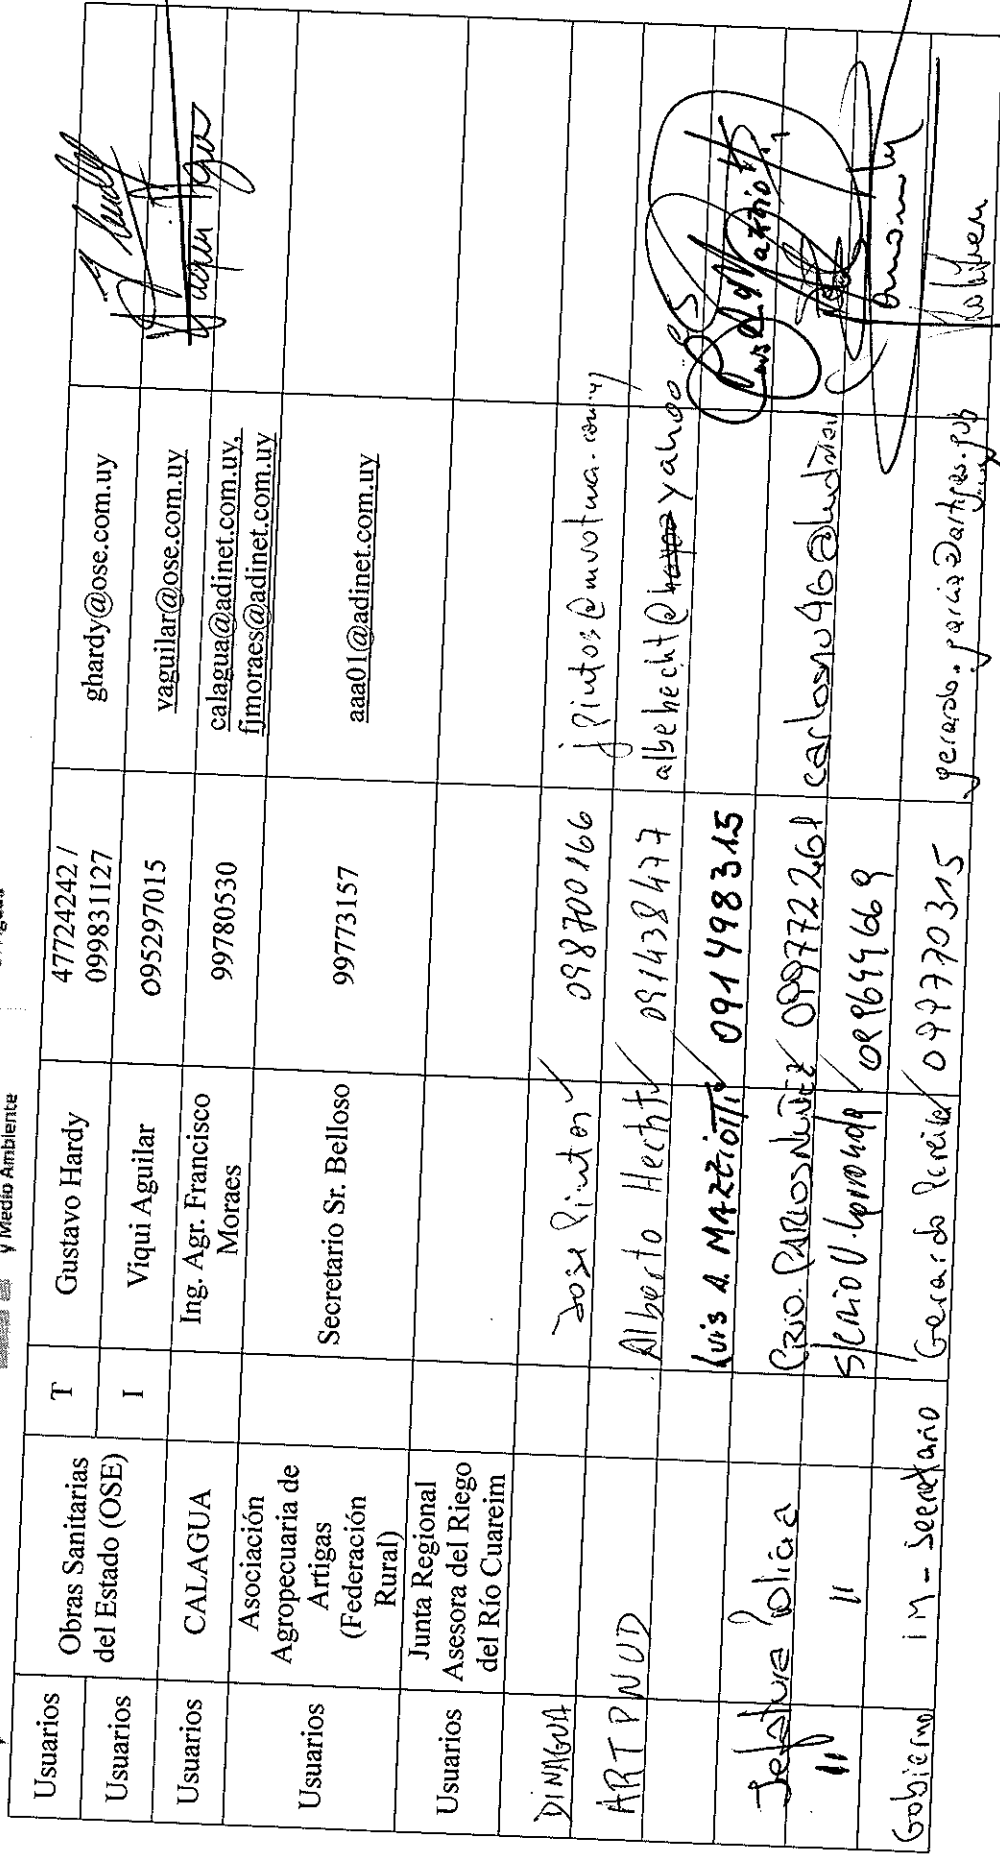 y Medio Ambiente
Usuarios
Obras Sanitarias
del Estado (OSE)
T
Gustavo Hardy
47724242 /
099831127
ghardy@ose.com.uy
Usuarios
I
Viqui Aguilar
095297015
vaguilar@ose.com.uy
Usuarios
CALAGUA
Ing. Agr. Francisco
Moraes
99780530
calagua@adinet.com.uy,
fjmoraes@adinet.com.uy
Usuarios
Asociación
Agropecuaria de
Artigas
(Federación
Rural)
Secretario Sr. Belloso
99773157
aaa01@adinet.com.uy
Usuarios
Junta Regional
Asesora del Riego
del Río Cuareim
DINAGUA
Jose Pintos
098700166
jpintos@mvotma.com.uy
ART PNUD
Alberto Hecht
091438477
albehecht@yahoo.es
Luis A. MAZZIOTTI
091498315
Jefatura Policia
CRIO. CARLOS NUÑEZ
099772261
" "
099644669
Gobierno
IM - Secretario
Gerardo
099770315